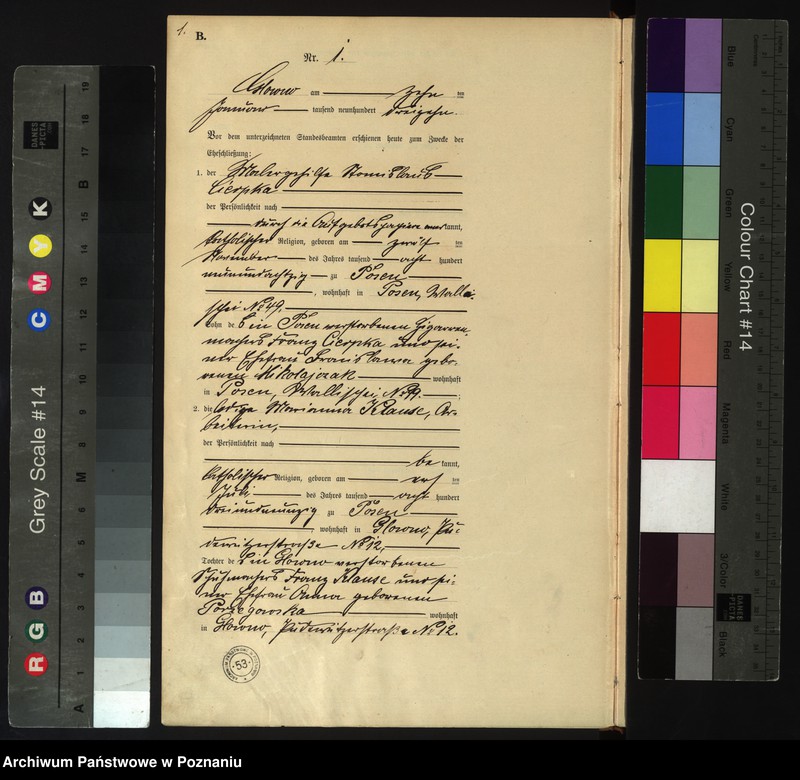 1.
B.
Nr. 1.
Glowno am zehn ten
Januar tausend neunhundert dreizehn.
Vor dem unterzeichneten Standesbeamten erschienen heute zum Zwecke der
Eheschließung:
1. der Malergehilfe Stanislaus
Ciespka
der Persönlichkeit nach
durch die Aufgebotspapiere aner kannt,
katholischer Religion, geboren am zwölf ten
November des Jahres tausend acht hundert
neunundachtzig zu Posen
, wohnhaft in Posen, Walli-
schei No 49.
Sohn des in Posen verstorbenen Zigarren-
machers Franz Ciespka und sei-
ner Ehefrau gebo-
renen Mikolajczak wohnhaft
in Posen, Wallischei, No 49. ;
2. die ledige Marianna Klause, Ar-
beiterin,
der Persönlichkeit nach
be kannt,
katholischer Religion, geboren am ten
Juli des Jahres tausend acht hundert
dreiundneunzig zu Posen
, wohnhaft in Glowno, Pu-
dewitzerstraße No 12,
Tochter des in Glowno verstorbenen
Schuhmachers Franz Klause und sei-
ner Ehefrau Anna geborenen
wohnhaft
in Glowno, Pudewitzerstraße No 12.
53
Grey Scale #14
A 1 2 3 4 5 6 M 8 9 10 11 12 13 14 15 B 17 18 19
R G B
C M Y K
DANES PICTA
Colour Chart #14
Blue
Cyan
Green
Yellow
Red
Magenta
White
3/Color
Black
DANES PICTA
Archiwum Państwowe w Poznaniu